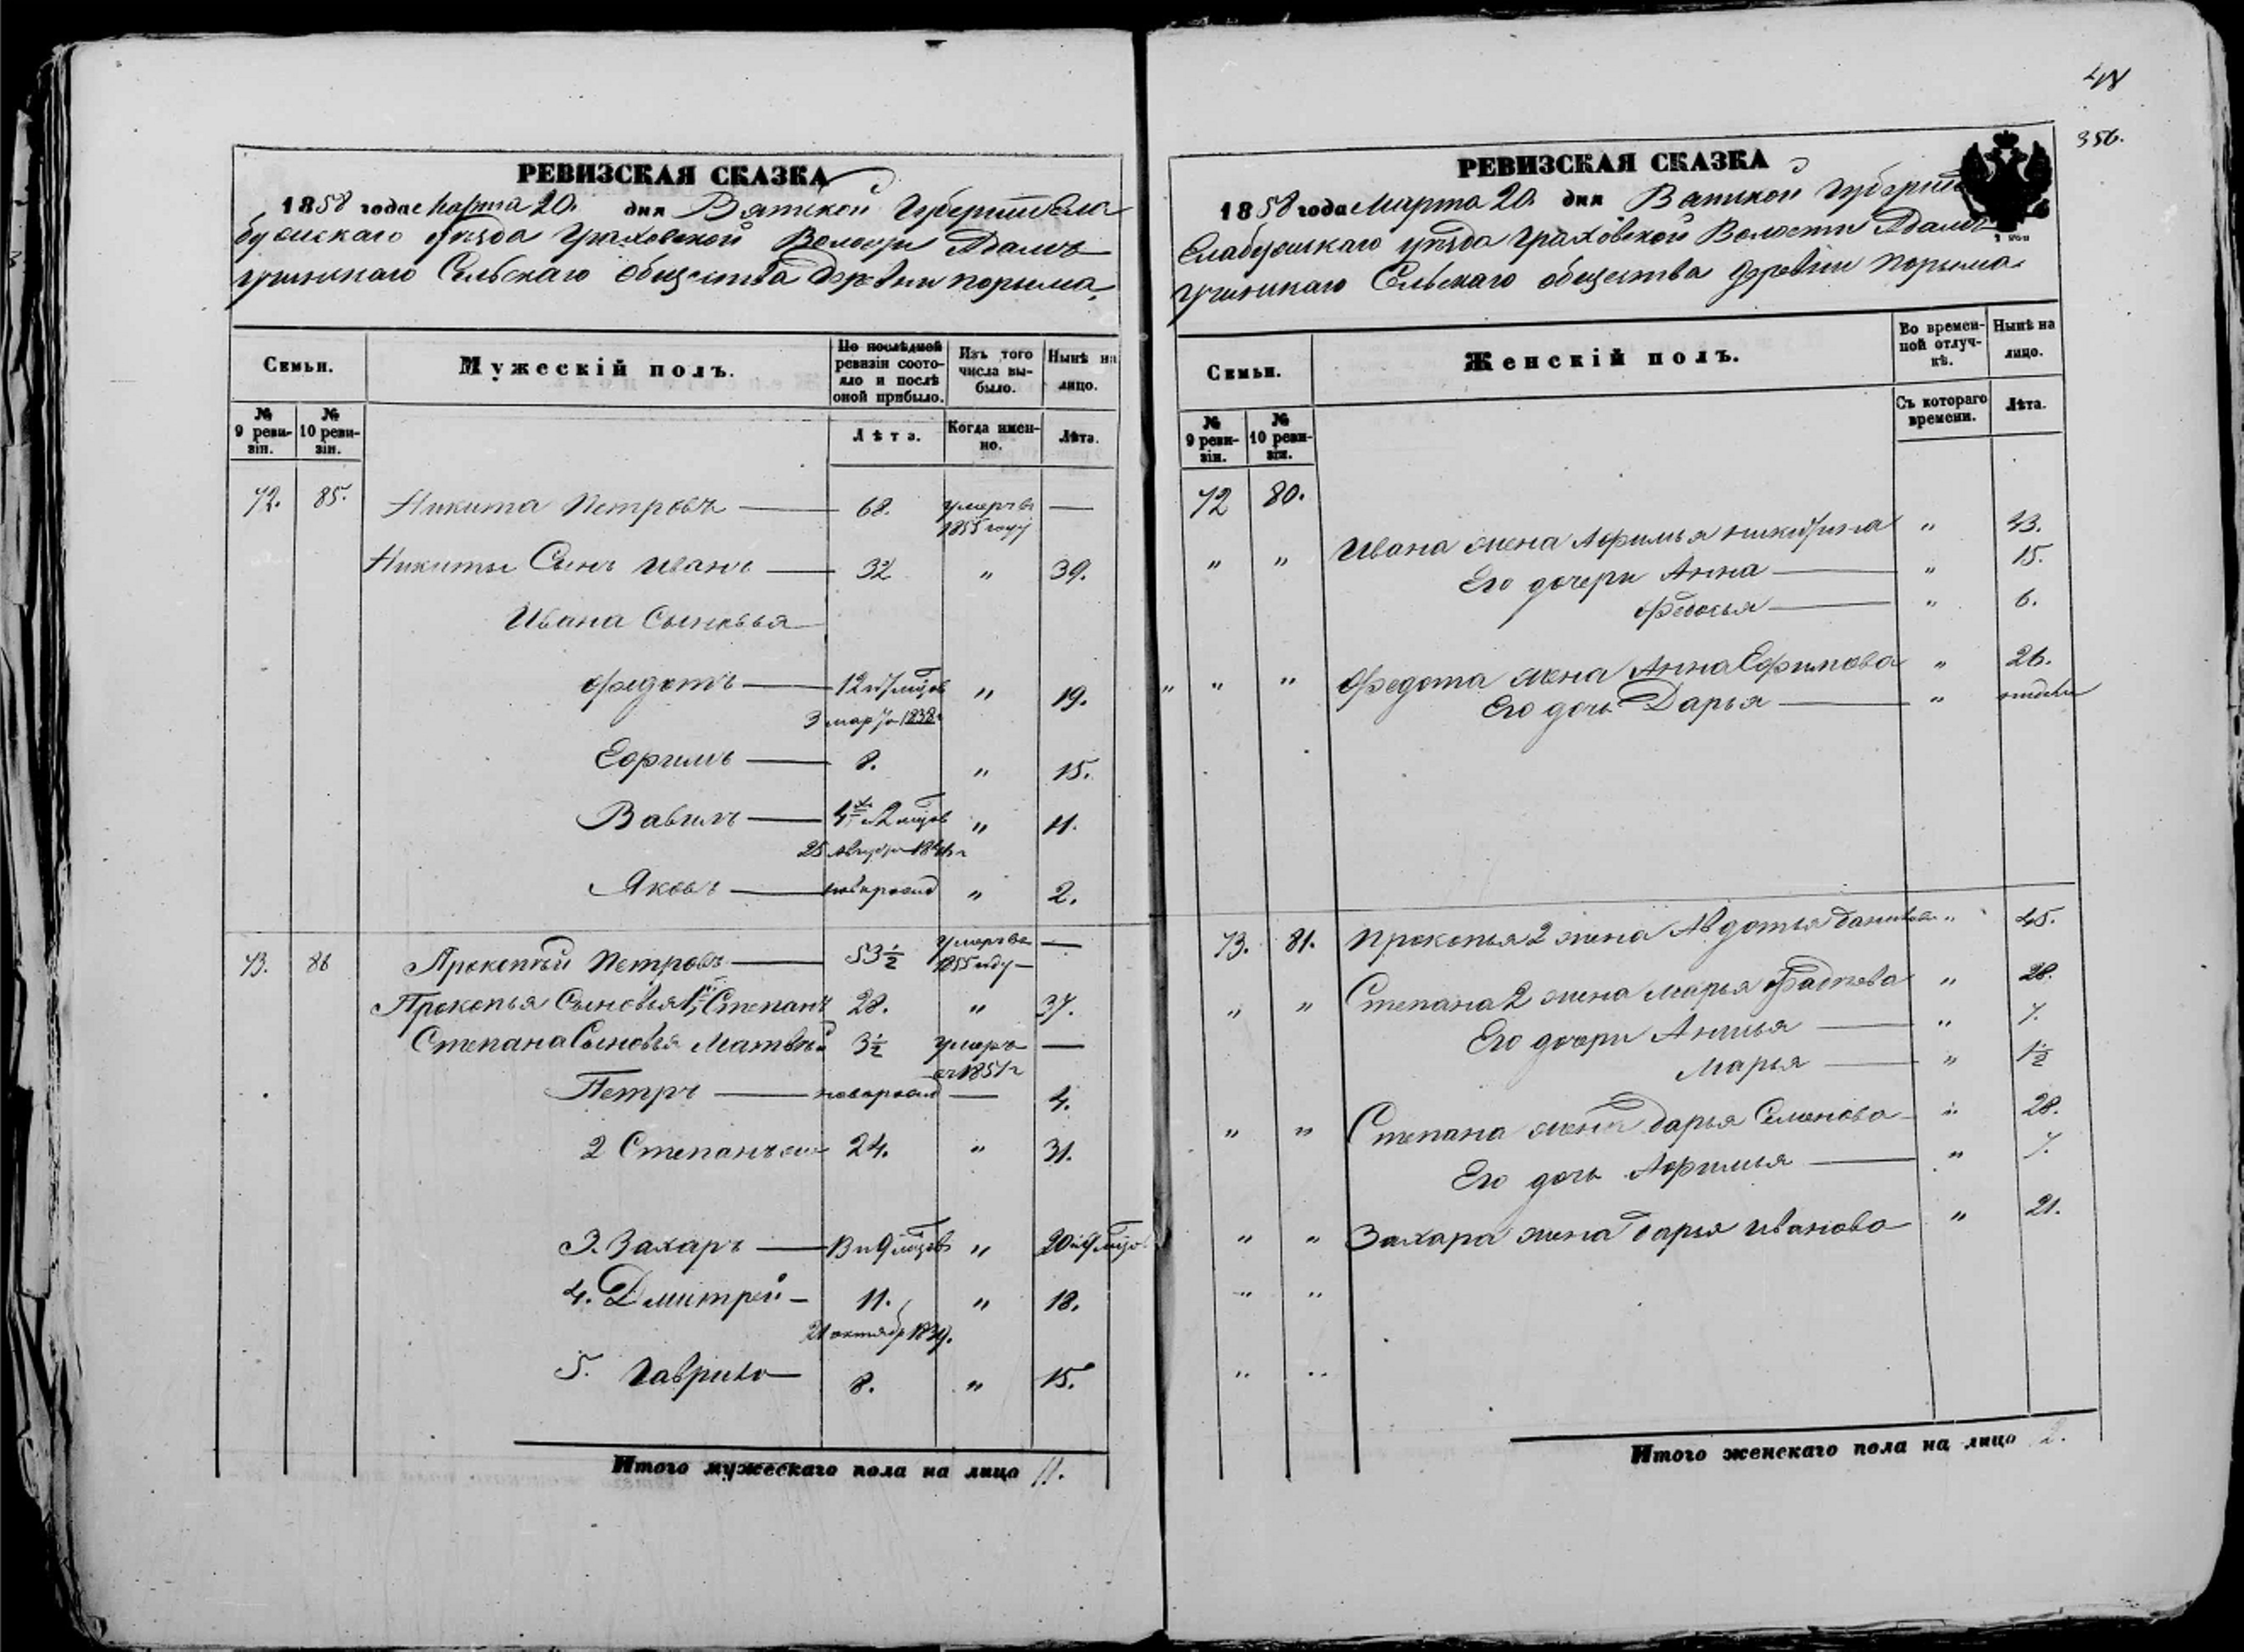 РЕВИЗСКАЯ СКАЗКА
1858 года Марта 20. дня Вятской Губернии Ела
бужскаго уѣзда Граховской Волости Адамъ
учинскаго Сельскаго общества деревни Порыма.
Семьи.
Мужескій полъ.
По послѣдней ревизіи состояло и послѣ оной прибыло.
Изъ того числа выбыло.
Нынѣ на лицо.
№ 9 ревизіи.
№ 10 ревизіи.
Лѣта.
Когда именно.
Лѣта.
72. 85. Никита Петровъ — 68. умеръ въ 1855 году —
Никиты Сынъ Иванъ — 32 " 39.
Ивана Сыновья
Федотъ — 12 и 7 " 19.
3 1838
Ефимъ — 8. " 15.
Вавилъ — 4 и 2 " 11.
25
Яковъ — новорожд " 2.
73. 86 Прокопий Петровъ — 53½ умеръ въ 1855 году —
Прокопья Сыновья 1й Степанъ 28. " 37.
Степана Сыновья Матвѣй 3½ умеръ 1851 —
Петръ — новорожд — 4.
2 Степанъ 24. " 31.
3. Захаръ — 13 и 9 " 20 и 9
4. Дмитрей — 11. " 18.
21 октябр 1839.
5. Гаврило — 8. " 15.
Итого мужескаго пола на лицо 11.
48
356.
РЕВИЗСКАЯ СКАЗКА
1858 года Марта 20. дня Вятской Губерніи
Елабужскаго уѣзда Граховской Волости Адамъ
учинскаго Сельскаго общества деревни Порыма.
Семьи.
Женскій полъ.
Во временной отлучкѣ.
Нынѣ на лицо.
№ 9 ревизіи.
№ 10 ревизіи.
Съ котораго времени.
Лѣта.
72 80.
" " Ивана жена Афимья Никитина " 43.
Его дочери Анна — " 15.
Федосья — " 6.
" " " Федота жена Анна Ефимова " 26.
Его дочь Дарья — "
73. 81. Прокопья 2 жена Авдотья " 45.
" " Степана 2 жена Марья Фадѣева " 28.
Его дочери — " 7.
Марья — " 1½
" " Степана жена Дарья Семенова " 28.
Его дочь Афимья — " 7.
" " Захара жена Дарья Иванова " 21.
" "
" "
Итого женскаго пола на лицо